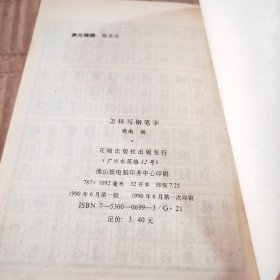 责任编辑:
怎样写钢笔字
晓南 编
*
花城出版社出版发行
(广州水荫路12号)
佛山报电脑印务中心印刷
787×1092毫米 32开本 印张7.25
1990年6月第一版 1990年6月第一次印刷
ISBN 7—5360—0699—3/G·21
定价: 3.40元